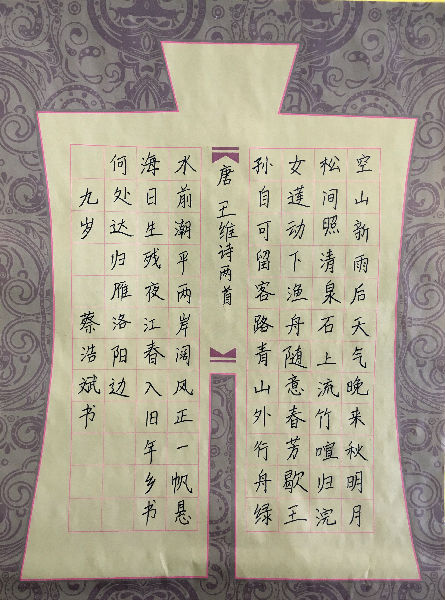 空山新雨后天气晚来秋明月
松间照清泉石上流竹喧归浣
女莲动下渔舟随意春芳歇王
孙自可留客路青山外行舟绿
唐 王维诗两首
水前潮平两岸阔风正一帆悬
海日生残夜江春入旧年乡书
何处达归雁洛阳边
九岁 蔡浩斌书